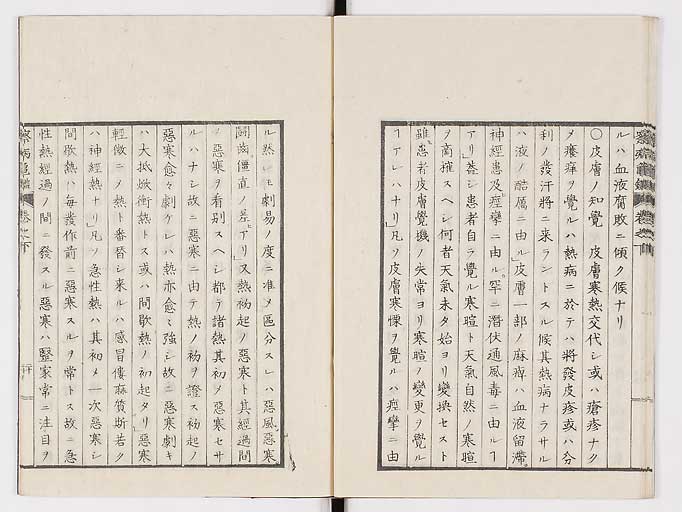 ルハ血液腐敗ニ傾ク候ナリ
〇皮膚ノ知覺 皮膚寒熱交代シ或ハ瘡疹ナク
メ癢痒ヲ覺ルハ熱病ニ於テハ將發皮疹或ハ分
利ノ發汗將ニ来ラントスル候其熱病ナラサル
ハ液ノ酷厲ニ由ル」皮膚一部ノ麻痺ハ血液留滞
神經患及痙攣ニ由ル」罕ニ潜伏通風毒ニ由ルヿ
アリ」茲ニ患者自ラ覺ル寒暄ト天氣自然ノ寒暄
ヲ商搉スヘシ何者天氣未タ始ヨリ變換セスト
雖𪜈患者皮膚覺機ノ失常ヨリ寒暄ノ變更ヲ覺ル
ヿアレハナリ」凡ソ皮膚寒慄ヲ覺ルハ痙攣ニ由
ル然レ𪜈劇易ノ度ニ准メ區分スレハ惡風惡寒
鬪齒僵直ノ差アリ」ス熱初起ノ惡寒ト其經過間
ノ惡寒ヲ看別スヘシ都テ諸熱其初メ惡寒セサ
ルハナシ故ニ惡寒ニ由テ熱ノ初ヲ證ス初起ノ
惡寒愈々劇ケレハ熱亦愈々強シ故ニ惡寒劇キ
ハ大抵焮衝熱トス或ハ間歇熱ノ初起タリ」惡寒
輕微ニメ熱ト番替シ来ルハ感冒僂麻質斯若ク
ハ神經熱ナリ」凡ソ急性熱ハ其初メ一次惡寒シ
間歇熱ハ毎發作前ニ惡寒スルヲ常トス故ニ急
性熱經過ノ間ニ發スル惡寒ハ毉家常ニ注目ヲ